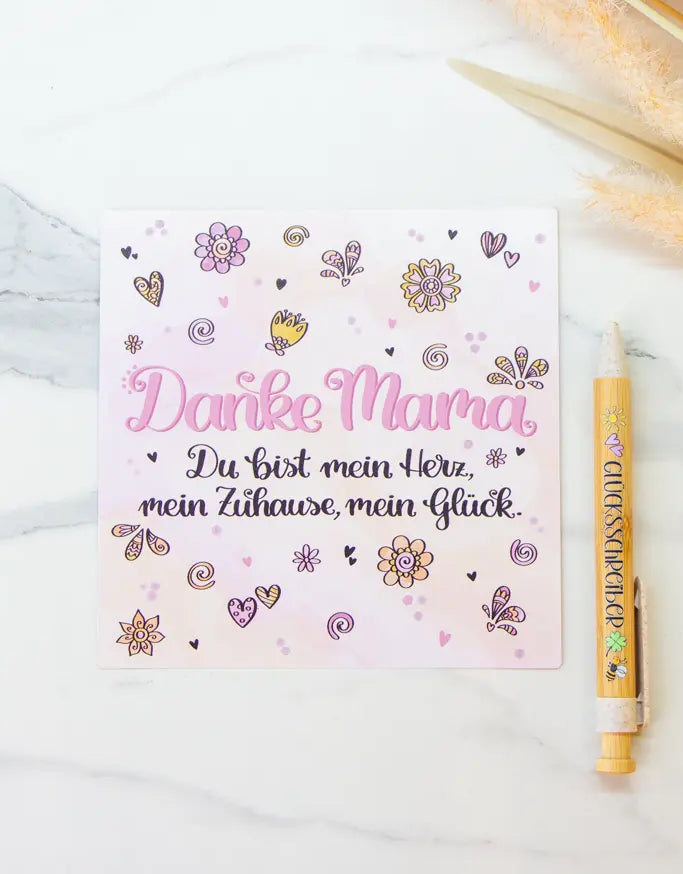 Danke Mama
Du bist mein Herz,
mein Zuhause, mein Glück.
GLÜCKSSCHREIBER